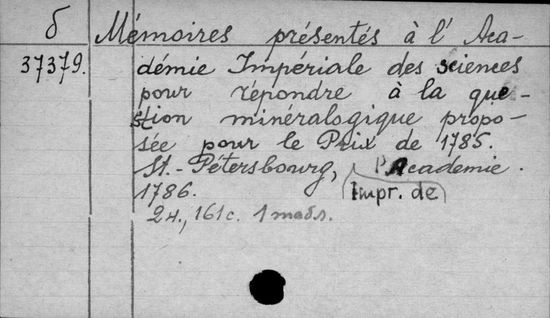 б Mémoires présentés à l' Aca-
37379. démie Impériale des sciences
pour répondre à la que-
stion minéralogique propo-
sée pour le Prix de 1785.
St.-Pétersbourg, l'Academie.
1786. Impr. de
2 н., 161 с. 1 табл.